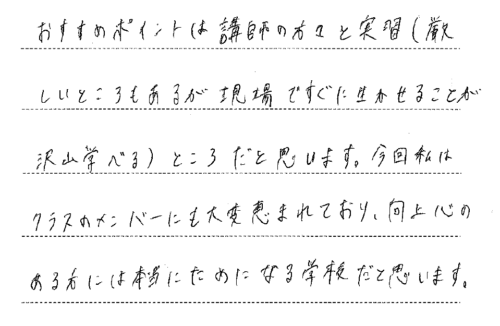 おすすめポイントは講師の方々と実習(厳
しいところもあるが現場ですぐに生かせることが
沢山学べる)ところだと思います。今回私は
クラスのメンバーにも大変恵まれており、向上心の
ある方には本当にためになる学校だと思います。